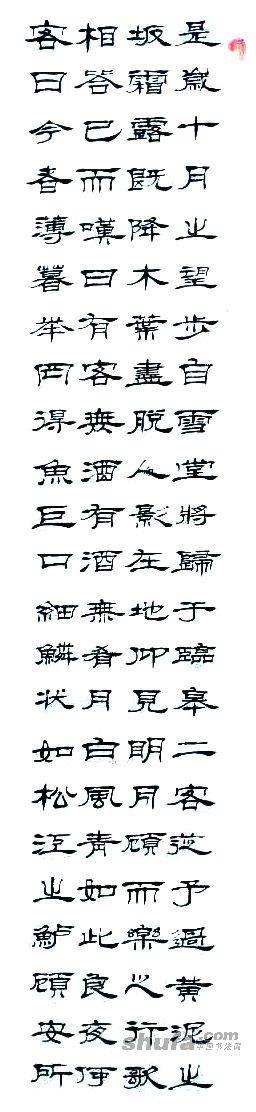 是歲十月之望步自雪堂將歸于臨皋二客從予過黃泥之
坂霜露既降木葉盡脫人影在地仰見明月顧而樂之行歌
相答已而嘆曰有客無酒有酒無肴月白風青如此良夜何
客曰今者薄暮举网得魚巨口細鱗狀如松江之鱸顧安所
shufa.com
中国书法网